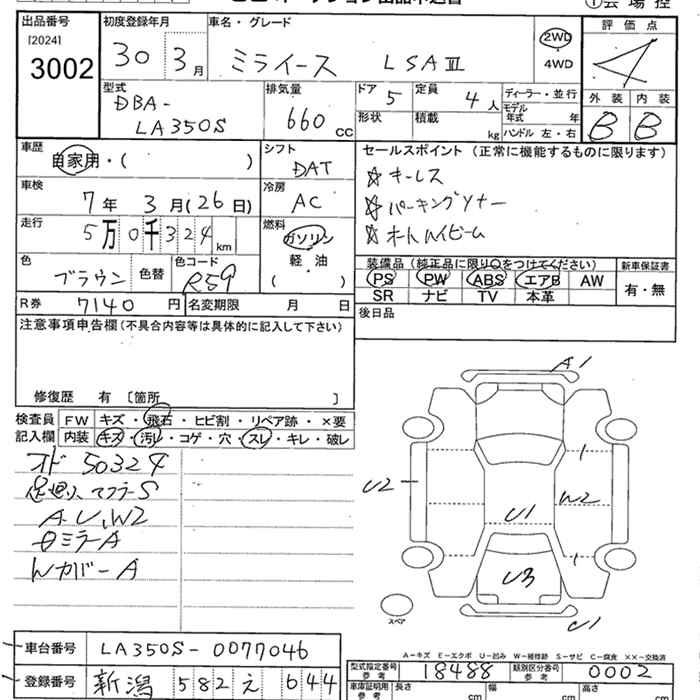 出品番号 初度登録年月 車名・グレード
[2024] 3002
30年 3月 ミライース LSAⅢ
2WD ・ 4WD
評価点
4
外装 内装
B B
型式 DBA-LA350S
排気量 660 CC
ドア 5 定員 4人
形状 積載 kg
ディーラー・並行
モデル年式 年
ハンドル 左・右
車歴 自家用・( )
シフト DAT
車検 7年 3月(26日)
冷房 AC
走行 5万0千324km
燃料 ガソリン
軽・油
( )
色 ブラウン 色替 色コード R59
R券 7140円 名変期限 月 日
セールスポイント (正常に機能するものに限ります)
☆ キーレス
☆ パーキングソナー
☆ オートハイビーム
装備品(純正品に限り○をつけてください) 新車保証書
PS PW ABS エアB AW 有・無
SR ナビ TV 本革
後日品
注意事項申告欄(不具合内容等は具体的に記入して下さい)
修復歴 有 〔箇所 〕
検査員 FW キズ・飛石・ヒビ割・リペア跡・×要
記入欄 内装 キズ・汚レ・コゲ・穴・スレ・キレ・破レ
オド 50324
足廻り、マフラーS
A.U,W2
ミラーA
WカバーA
A1
U2
W2
U1
U3
U1
スペア
A-キズ E-エクボ U-凹み W-補修跡 S-サビ C-腐食 ××-交換済
車台番号 LA350S-0077046
登録番号 新潟 582 え 644
型式指定番号 参考 18488 類別区分番号 参考 0002
車庫証明用 参考 長さ cm 幅 cm 高さ cm